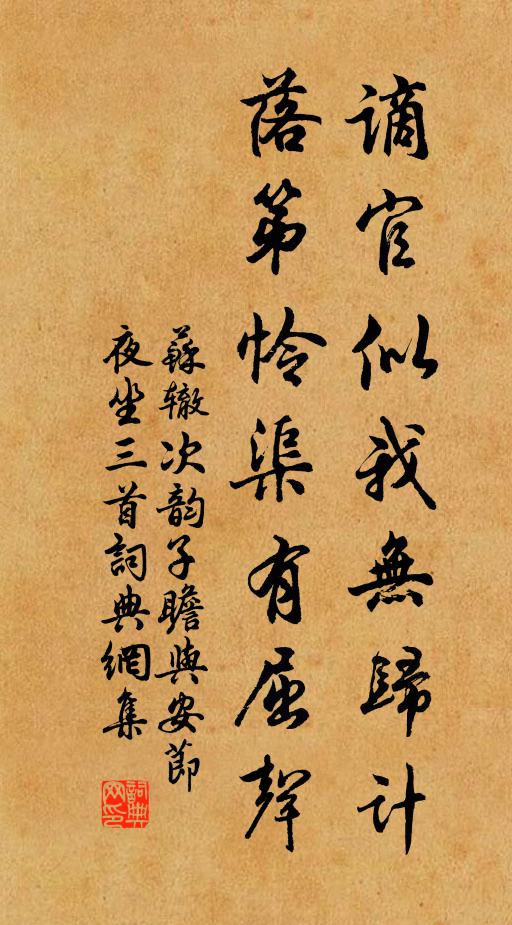 謫官似我無歸計
落第怜渠有屈聲
蘇辙次韵子瞻與安節
夜坐三首詞典網集
詞典
网印